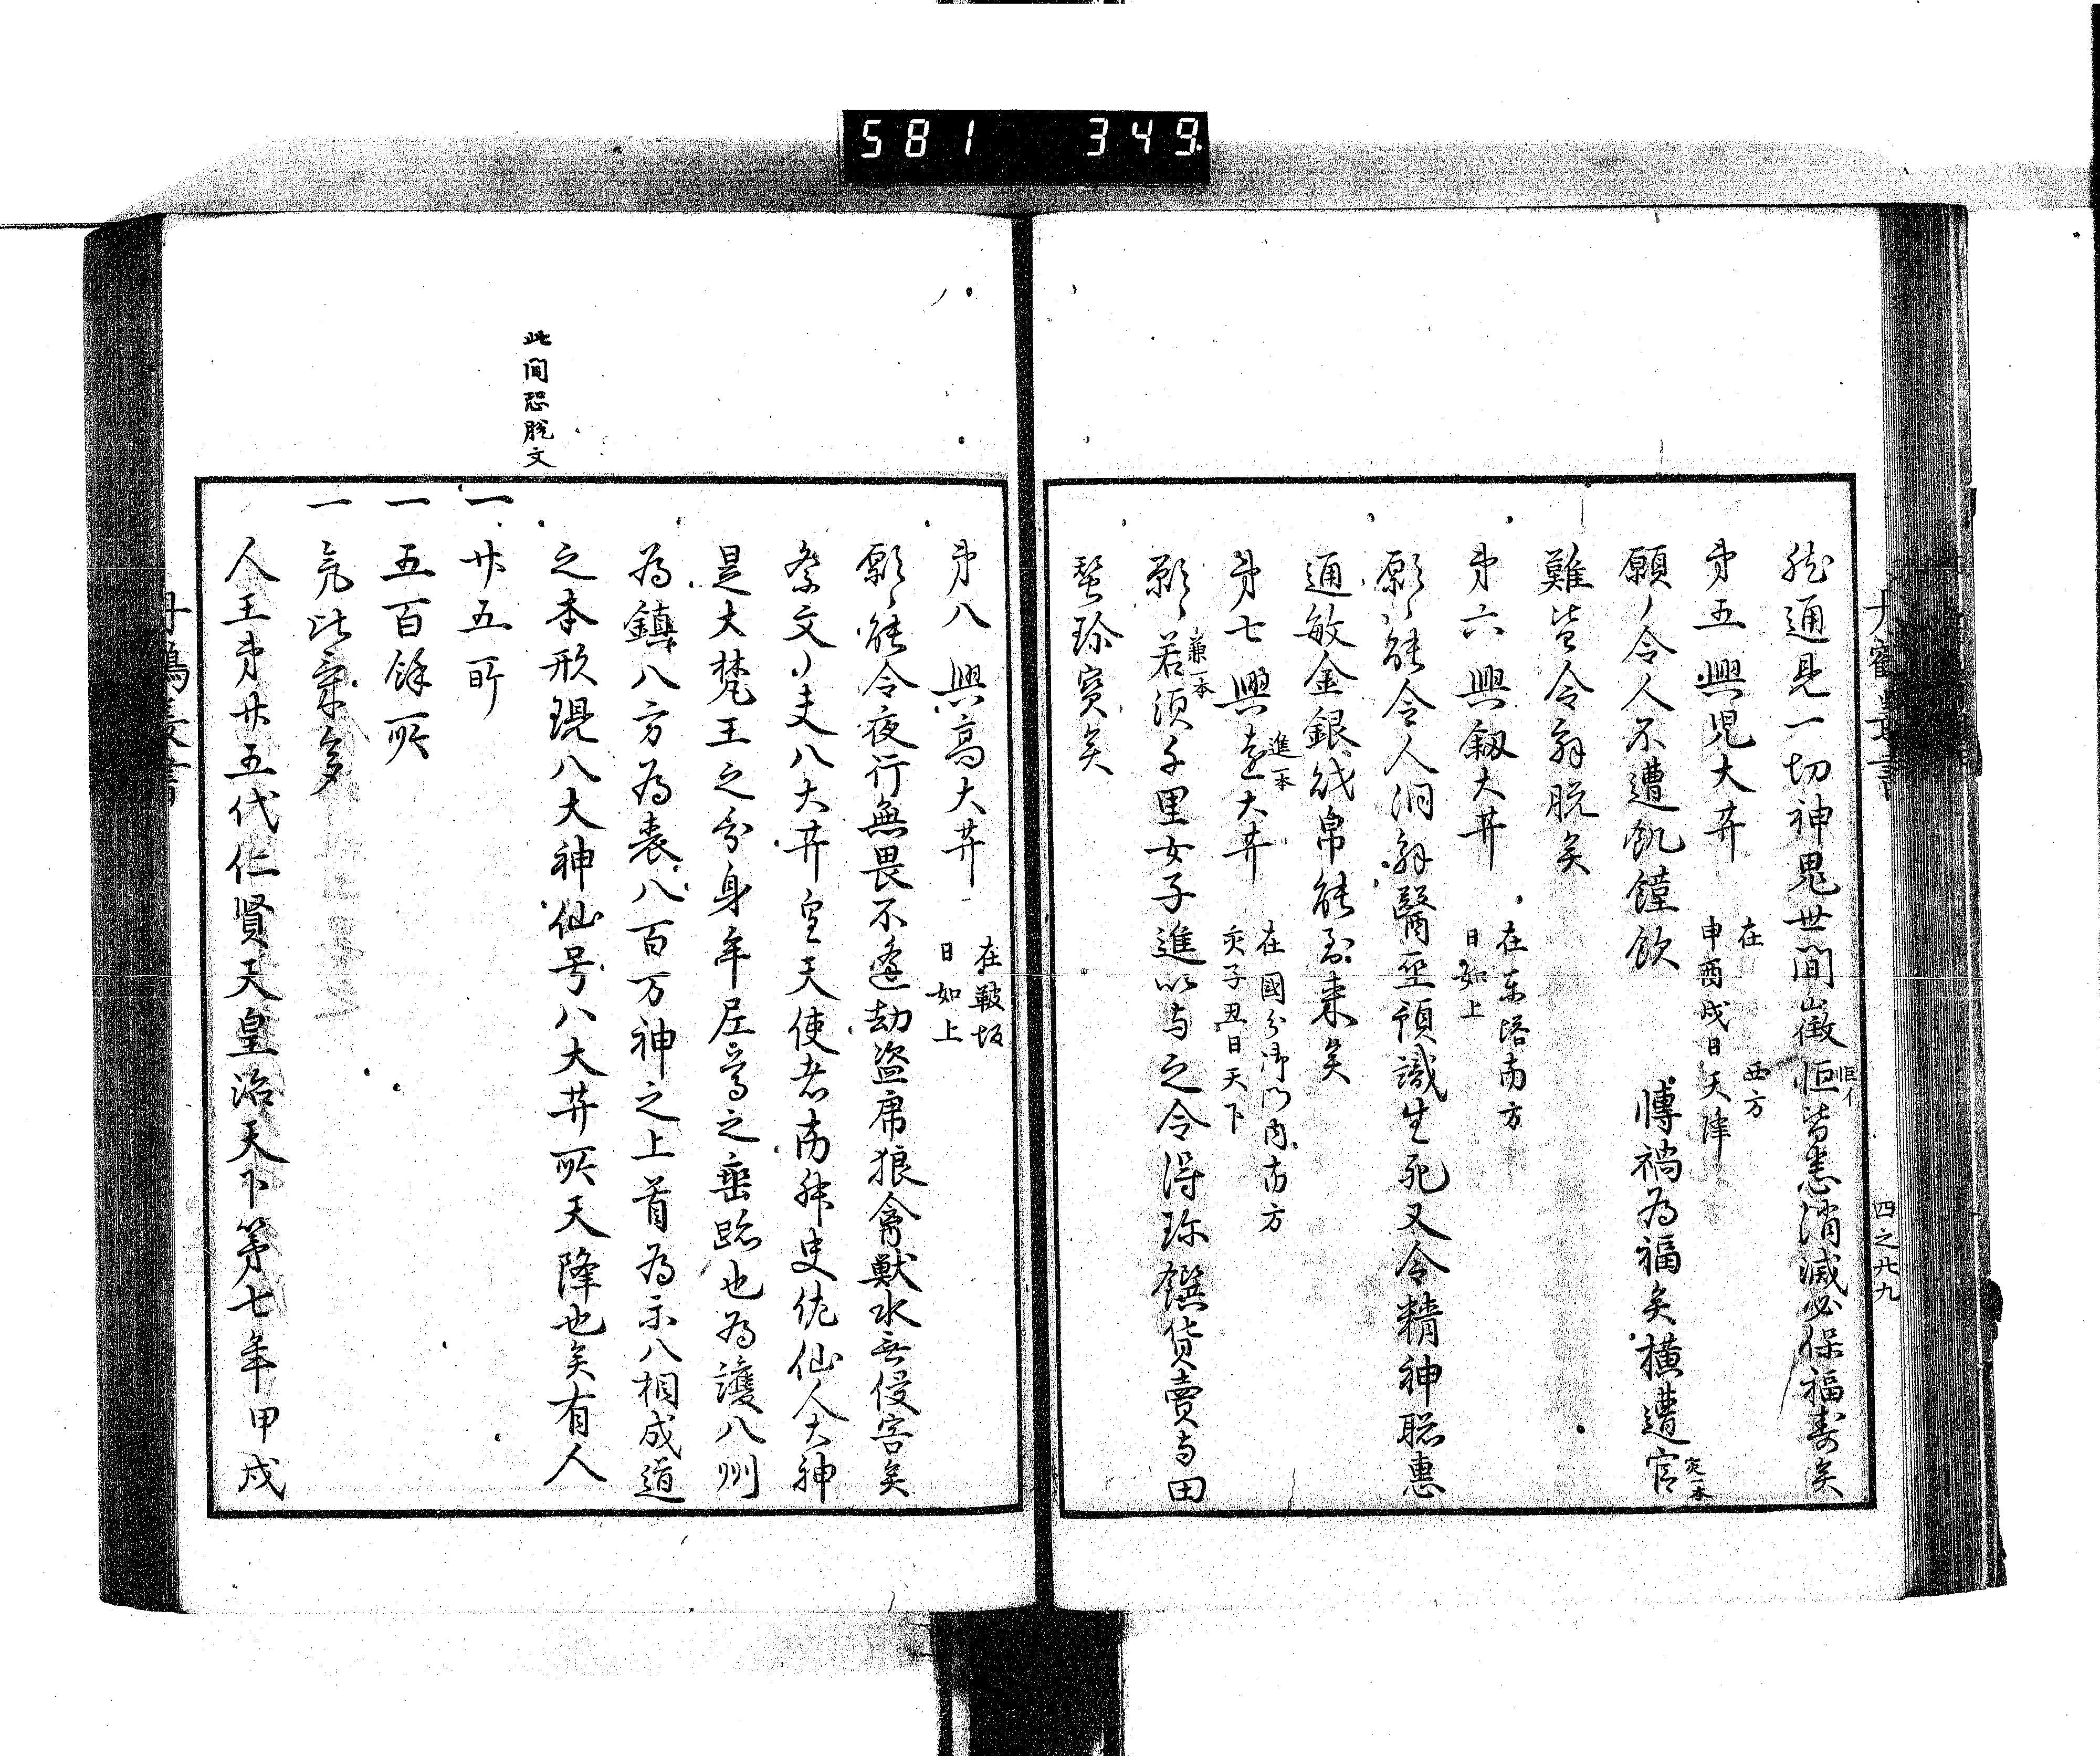 581 349
四之廿九
能通見一切神鬼世間徴恒皆悉消滅必保福寿矣
第五興児大井 在 西方 申酉戌日天降
願ゝ令人不遭飢饉飲 博禍為福矣横遭官
難皆令解脱矣
第六興釼大井 在東塔南方 日如上
願ゝ能令人洞解醫巫預識生死又令精神聡惠
通敏金銀財帛能到来矣
第七興進大井 在國分御門内南方 亥子丑日天下
進一本
兼一本
願ゝ若須千里女子進以与之令得珍饌貨賣与田
蚕珍寳矣
第八興高大井 在鞁坂 日如上
願ゝ能令夜行無畏不逢劫盗席狼禽獣水無侵害矣
祭文ゝ夫八大井皇天使者南舛吏佐仙人大神
是大梵王之分身牟尼尊之垂跡也為護八州
為鎮八方為表八百万神之上首為示八相成道
之本形現八大神仙号八大井所天降也矣有人
此間恐脱文
一 廿五町
一 五百餘所
一 凢比気多
人王第廿五代仁賢天皇治天下第七年甲戌